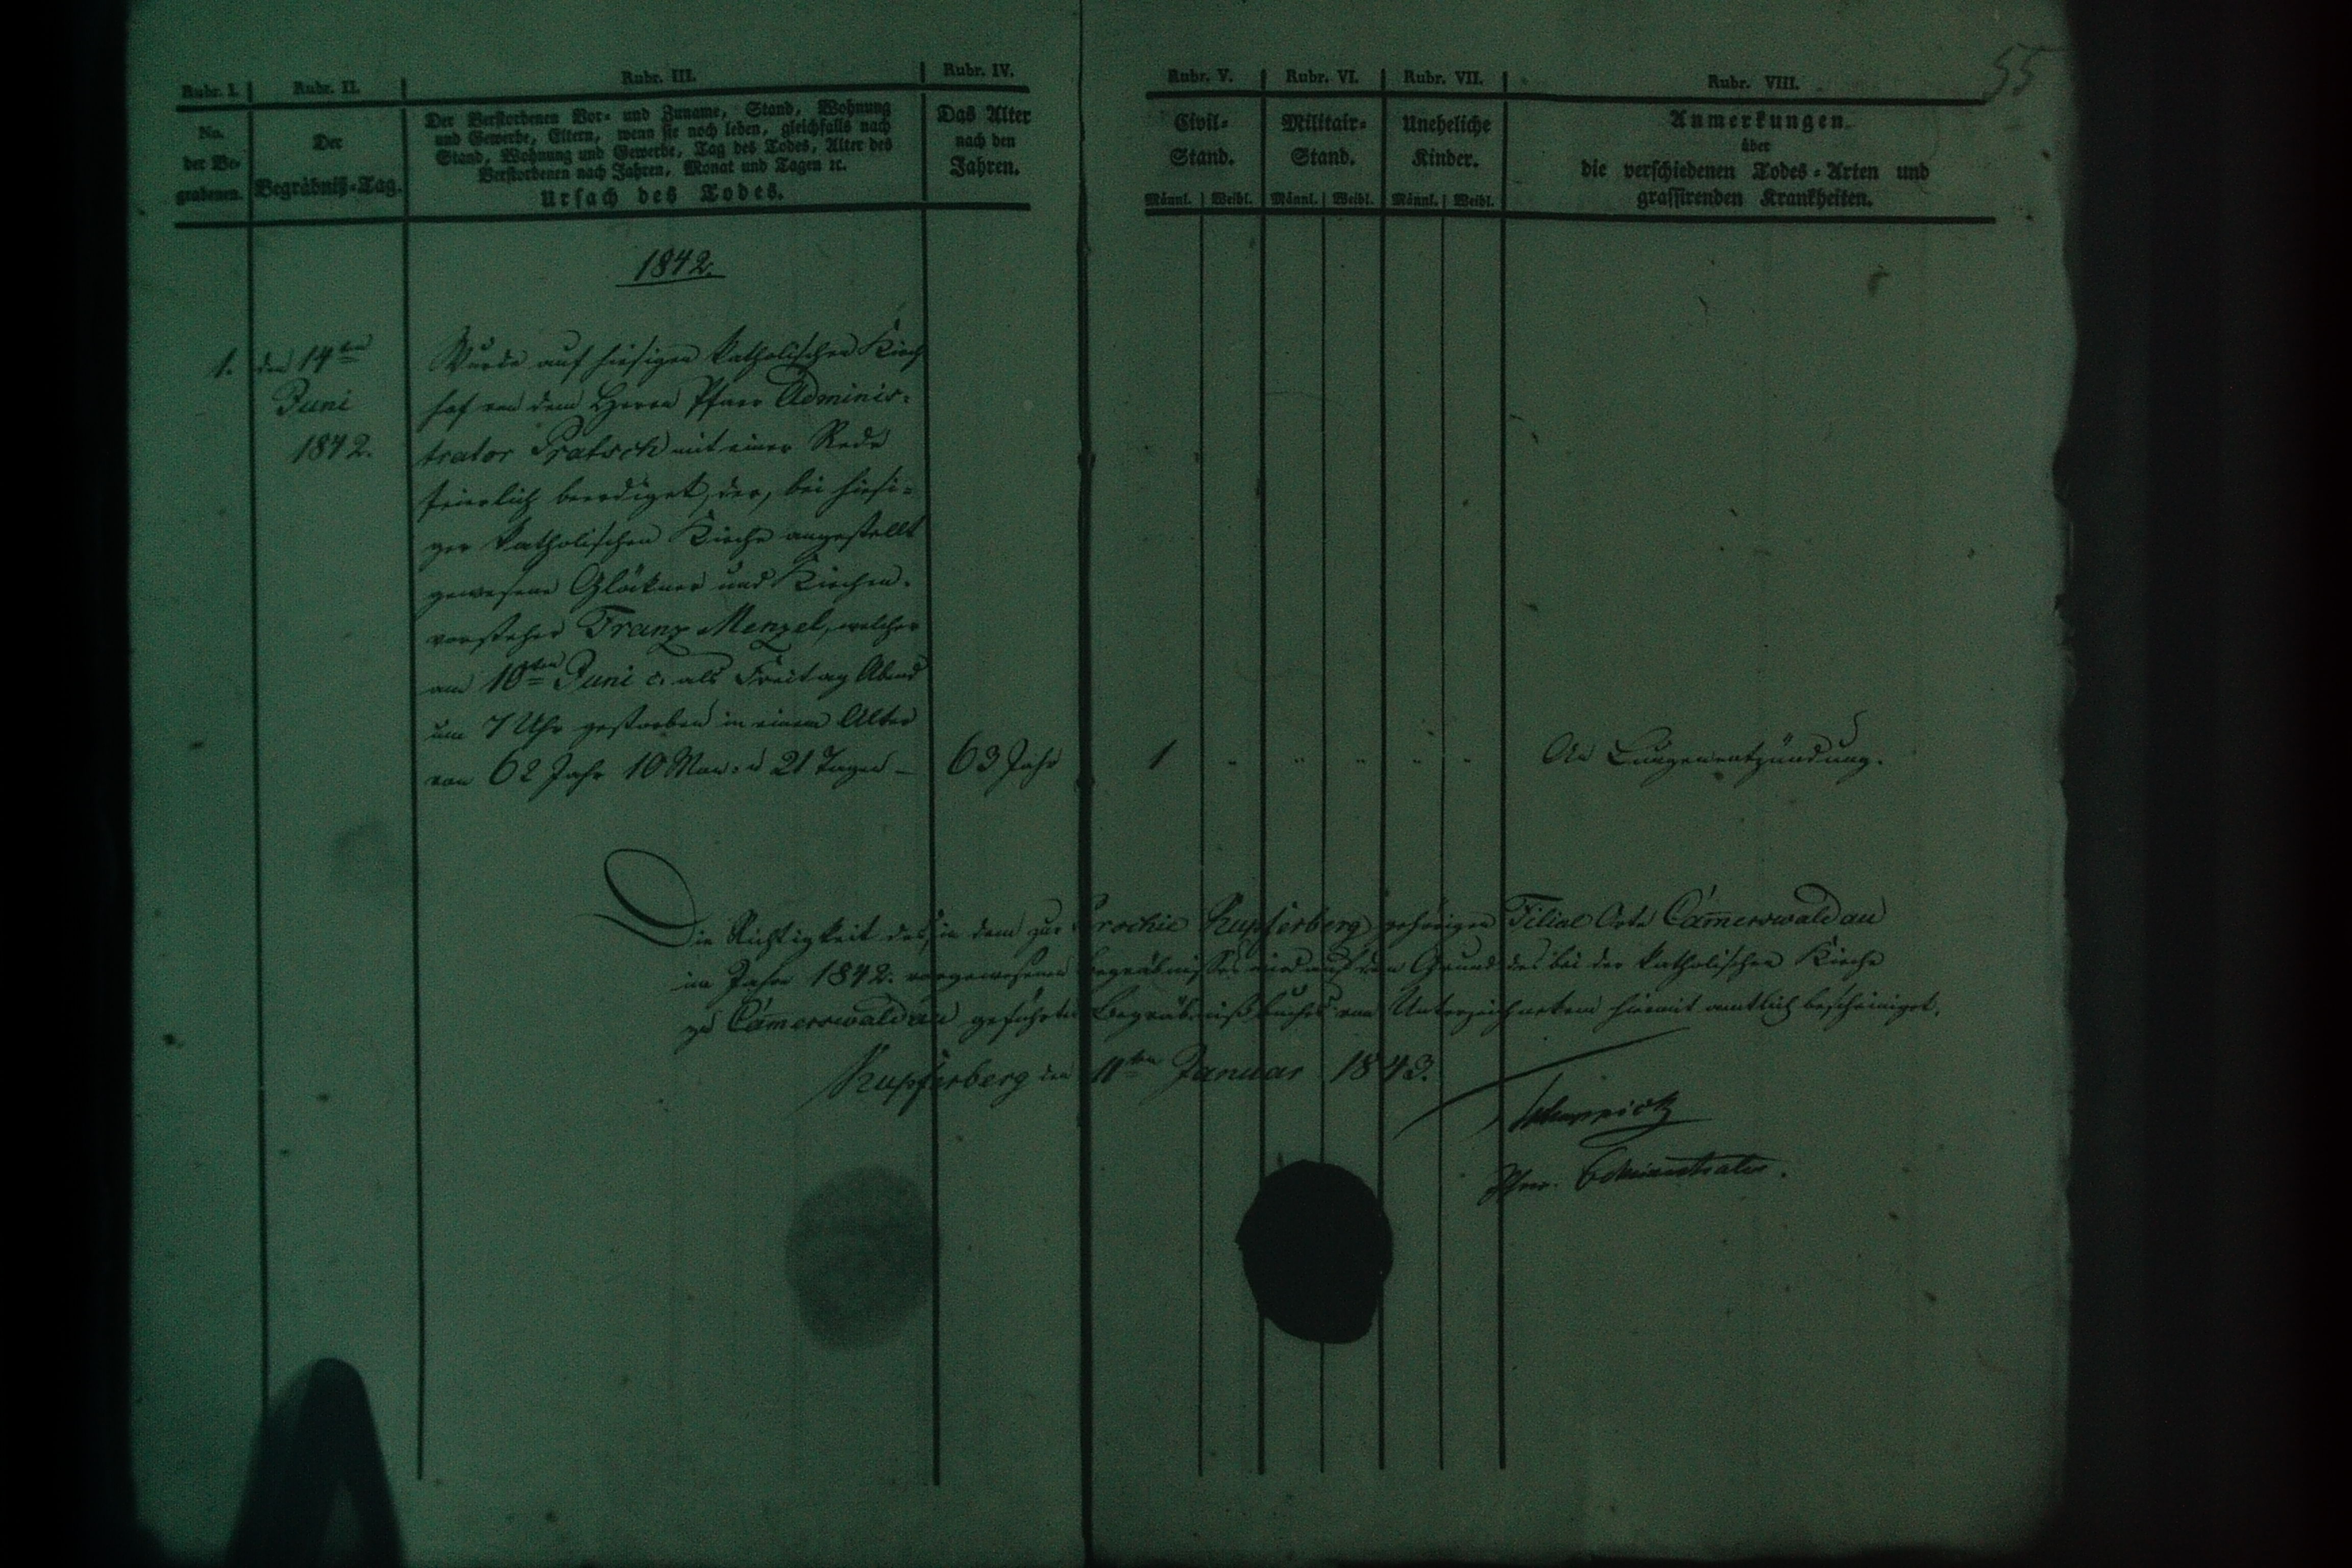 55
Rubr. I. Rubr. II. Rubr. III. Rubr. IV. Rubr. V. Rubr. VI. Rubr. VII. Rubr. VIII.
No. der Be- grabenen.
Der Begräbniß-Tag.
Der Verstorbenen Vor- und Zuname, Stand, Wohnung
und Gewerbe, Eltern, wenn sie noch leben, gleichfalls nach
Stand, Wohnung und Gewerbe, Tag des Todes, Alter des
Verstorbenen nach Jahren, Monat und Tagen ꝛc.
Ursach des Todes.
Das Alter
nach den
Jahren.
Civil-
Stand.
Militair-
Stand.
Uneheliche
Kinder.
Männl. Weibl. Männl. Weibl. Männl. Weibl.
Anmerkungen
über
die verschiedenen Todes-Arten und
grassirenden Krankheiten.
1842.
1. den 14ten
Juni
1842.
Wurde auf hiesigen katholischen Kirch
hof von dem Herrn Pfarr Adminis-
trator Pratsch mit einer Rede
feierlich beerdiget, der, bei hiesi-
ger katholischen Kirche angestellt
gewesene Glöckner und Kirchen-
vorsteher Franz Menzel, welcher
am 10ten Juni c. als Freitag Abend
um 7 Uhr gestorben in einem Alter
von 62 Jahr 10 Mon: u 21 Tagen – 63 Jahr 1 " " " " " An Lungenentzündung.
Die Richtigkeit des, in dem zur Parochie Kupferberg gehörigen Filial Orte Cam̄erswaldau
im Jahre 1842. vorgewesenen Begräbnisses wird auf den Grund des bei der katholischen Kirche
zu Cam̄erswaldau geführten Begräbnißbuches von Unterzeichnetem hiermit amtlich bescheiniget.
Kupferberg den 11ten Januar 1843.
Pfarr. Administrator.